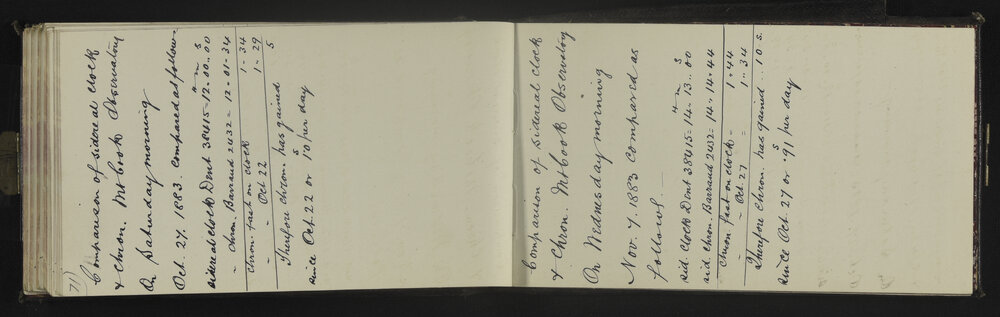 71)
Comparison of sidereal clock
& chron. Mt Cook Observatory
On Saturday morning
Oct. 27. 1883. Compared as follow-
h m s
sidereal clock Dent 38415 = 12.00..00
" chron. Barraud 2432 = 12-01-34
Chron. fast on clock 1-34
" - Oct 22 1-29
Therefore chron. has gained 5
s
since Oct. 22 or 1.0 per day
Comparison of sidereal clock
& Chron. Mt Cook Observatory
On Wednesday morning
Nov 7. 1883 Compared as
follows. —
h m s
Sid. Clock Dent 38415 = 14. 13..00
sid. chron. Barraud 2432 = 14.14.44
Chron fast on clock = 1.44
" - Oct. 27 = 1..34
Therefore Chron. has gained .. 10 s.
s
since Oct. 27 or .91 per day